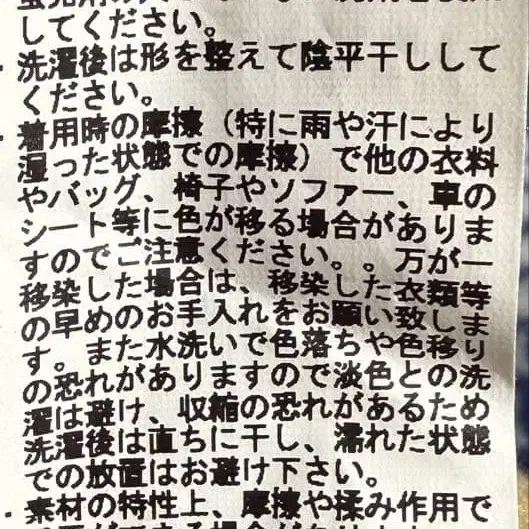 してください。
・洗濯後は形を整えて陰平干しして
ください。
・着用時の摩擦（特に雨や汗により
湿った状態での摩擦）で他の衣料
やバッグ、椅子やソファー、車の
シート等に色が移る場合がありま
すのでご注意ください。。万が一
移染した場合は、移染した衣類等
の早めのお手入れをお願い致しま
す。また水洗いで色落ちや色移り
の恐れがありますので淡色との洗
濯は避け、収縮の恐れがあるため
洗濯後は直ちに干し、濡れた状態
での放置はお避け下さい。
・素材の特性上、摩擦や揉み作用で